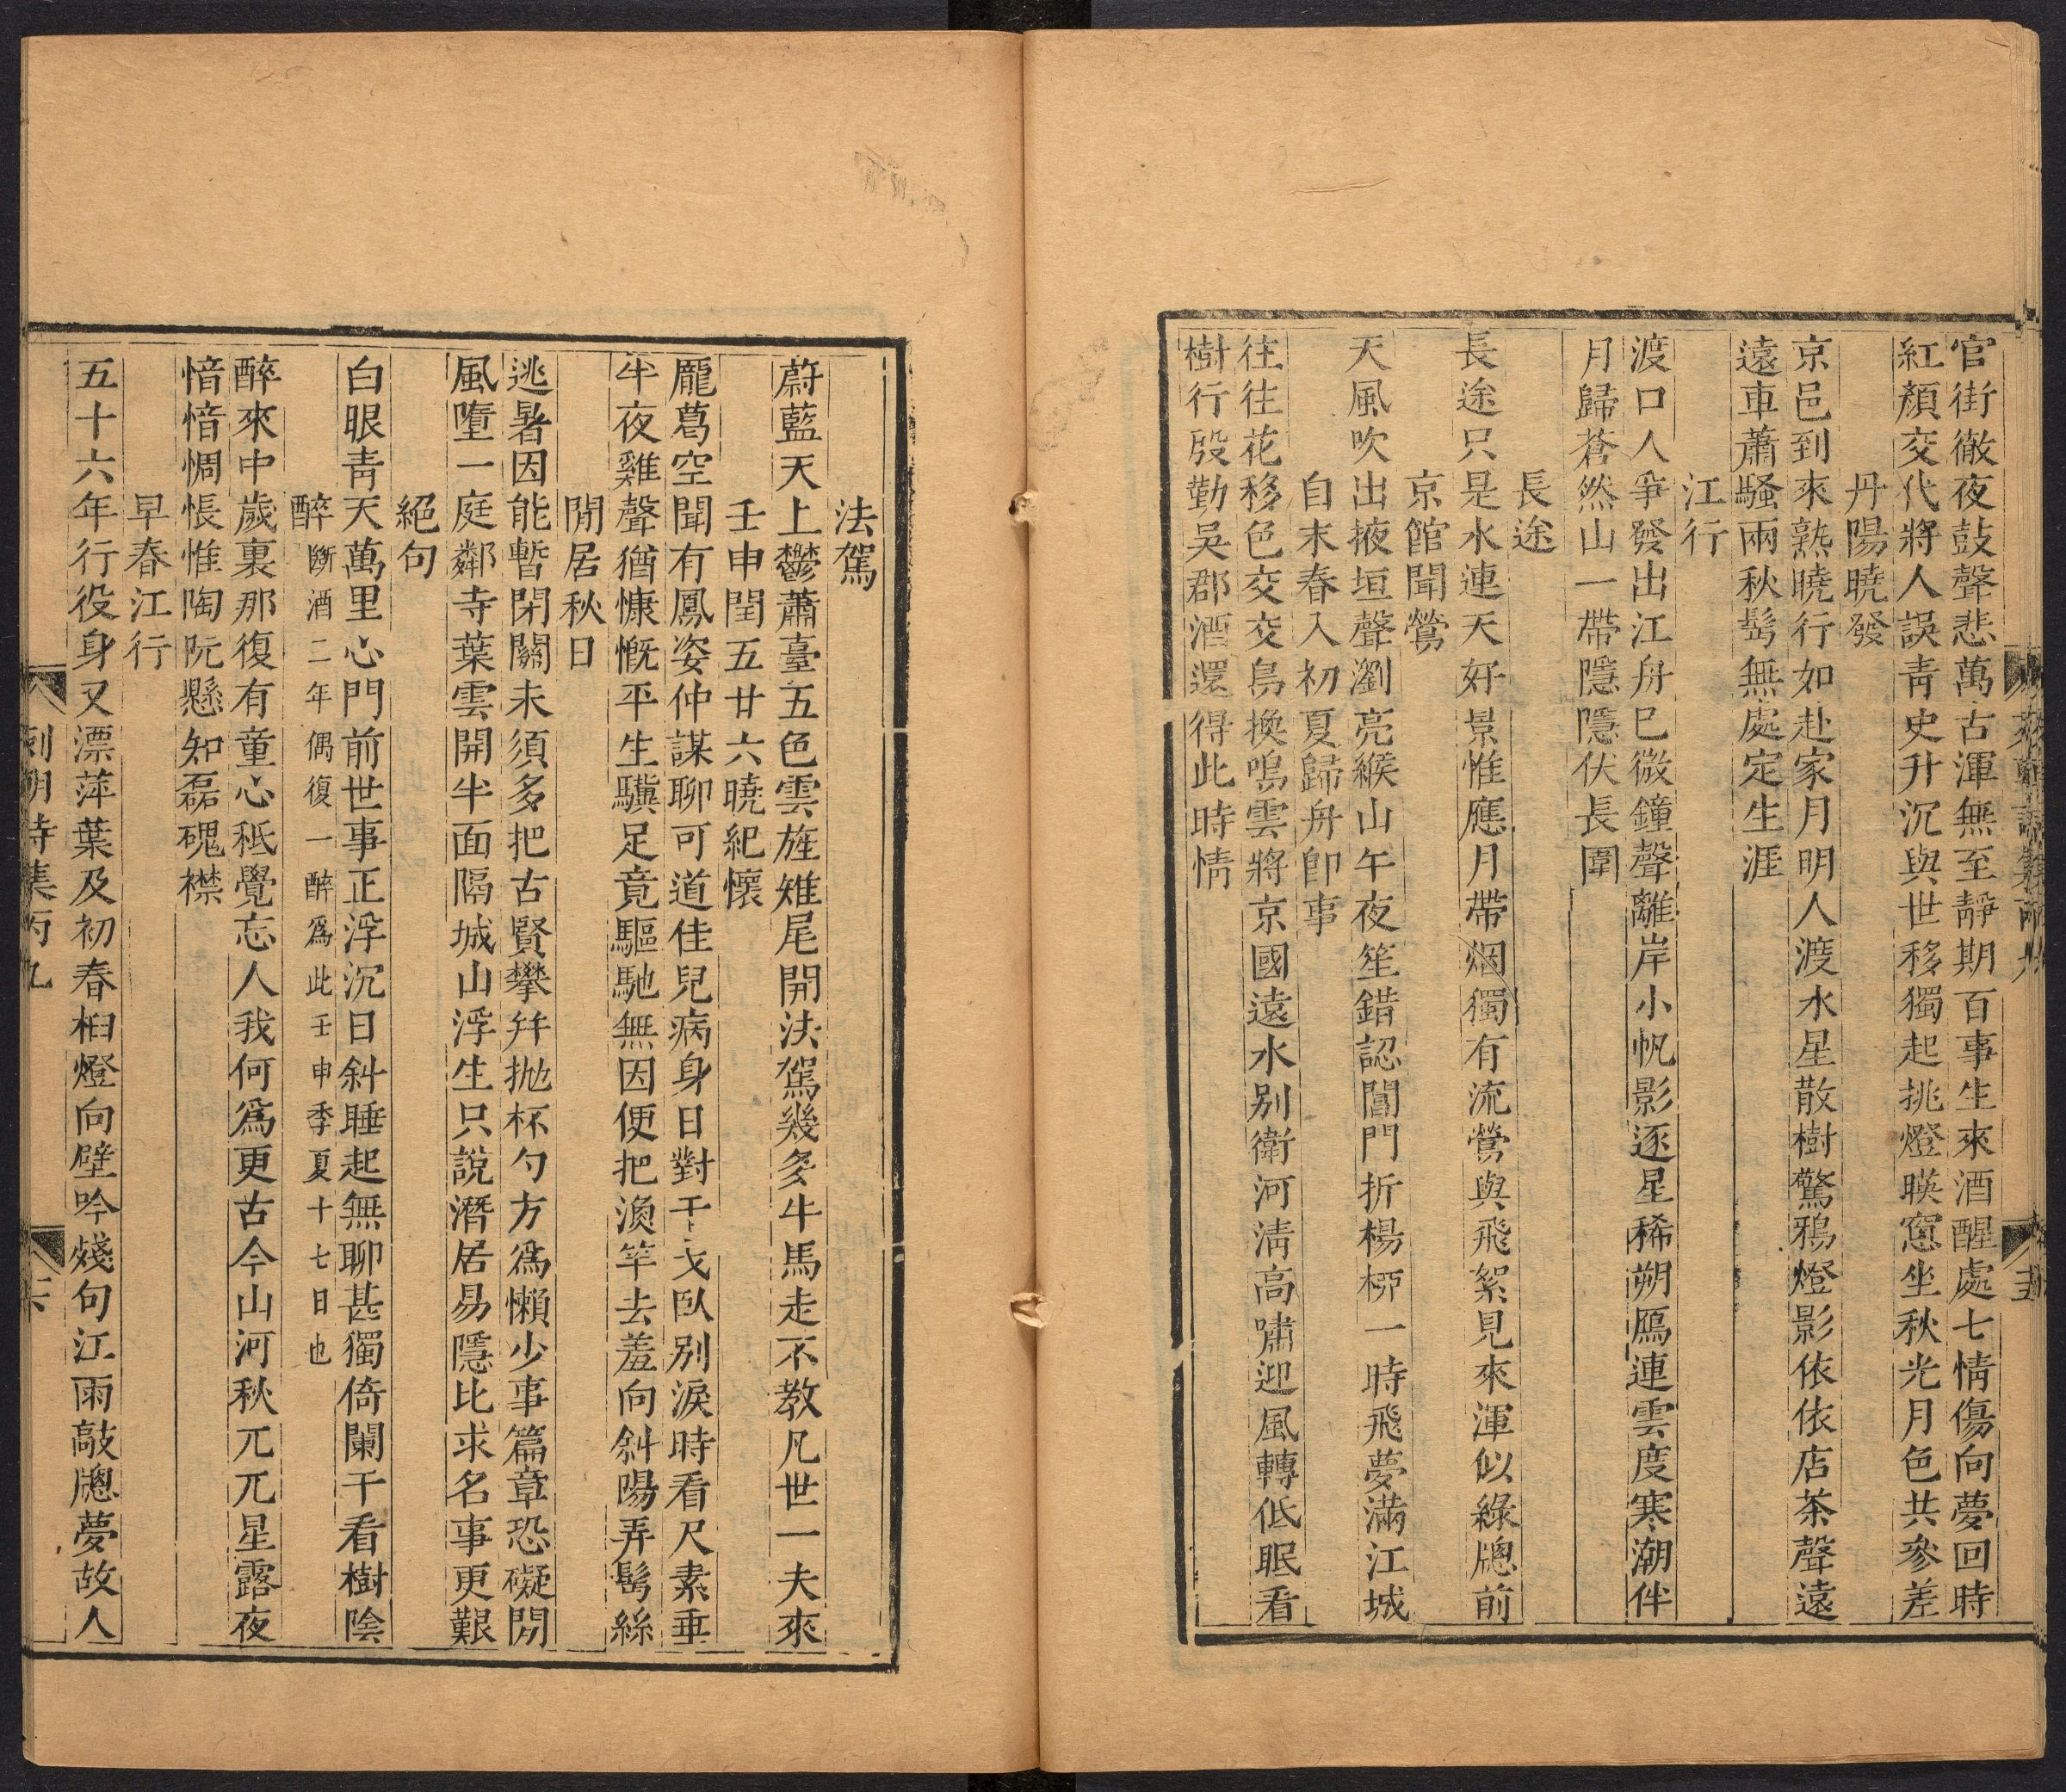 官街徹夜鼓聲悲萬古渾無至靜期百事生來酒醒處七情傷向夢回時
紅顏交代將人誤靑史升沉與世移獨起挑燈暎窻坐秋光月色共參差
丹陽曉發
京邑到來熟曉行如赴家月明人渡水星散樹驚鴉燈影依依店茶聲遠
遠車蕭騷兩秋髩無處定生涯
江行
渡口人爭發出江舟巳微鐘聲離岸小帆影逐星稀朔鴈連雲度寒潮伴
月歸蒼然山一帶隱隱伏長圍
長途
長途只是水連天好景惟應月帶烟獨有流鶯與飛絮見來渾似綠牕前
京館聞鶯
天風吹出掖垣聲瀏亮緱山午夜笙錯認閶門折楊桺一時飛夢滿江城
自末春入初夏歸舟卽事
往往花移色交交鳥換鳴雲將京國遠水别衛河淸高嘯迎風轉低眠看
樹行殷勤吳郡酒還得此時情
法駕
蔚藍天上鬱蕭臺五色雲旌雉尾開法駕幾多牛馬走不教凡世一夫來
壬申閏五廿六曉紀懷
龐葛空聞有鳳姿仲謀聊可道佳兒病身日對干戈臥别淚時看尺素垂
半夜雞聲猶慷慨平生驥足竟驅馳無因便把漁竿去羞向斜陽弄髩絲
閒居秋日
逃暑因能暫閉關未須多把古賢攀幷抛杯勺方爲懶少事篇章恐礙閒
風墮一庭鄰寺葉雲開半面隔城山浮生只說潛居易隱比求名事更艱
絕句
白眼靑天萬里心門前世事正浮沉日斜睡起無聊甚獨倚闌干看樹陰
醉斷酒二年偶復一醉爲此壬申季夏十七日也
醉來中歲裏那復有童心秪覺忘人我何爲更古今山河秋兀兀星露夜
愔愔惆悵惟陶阮懸知磊磈襟
早春江行
五十六年行役身又漂萍葉及初春桕燈向壁吟殘句江雨敲牕夢故人